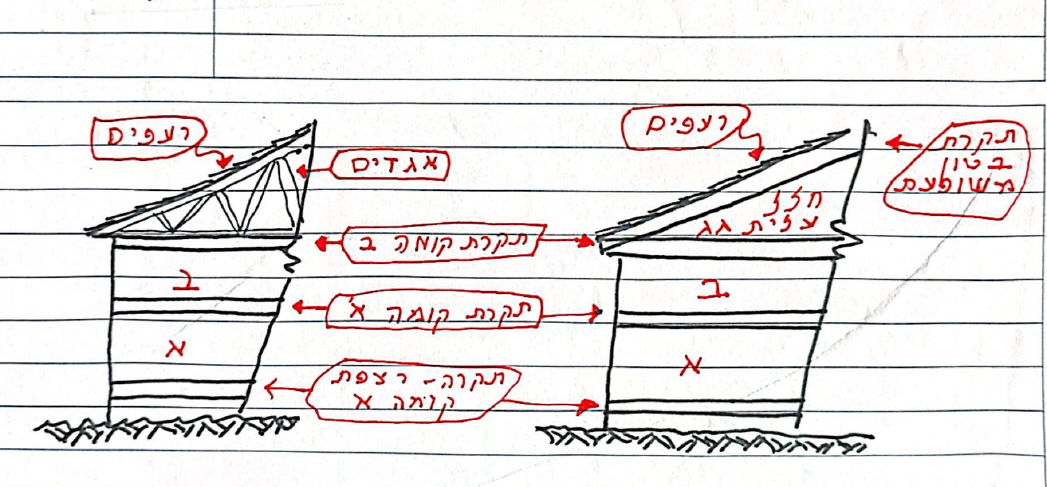 רעפים
אגדים
רעפים
תקרת
בטון
משופעת
חלל
עלית גג
תקרת קומה ב
ב
ב.
תקרת קומה א'
א
א
תקרה - רצפת
קומה א